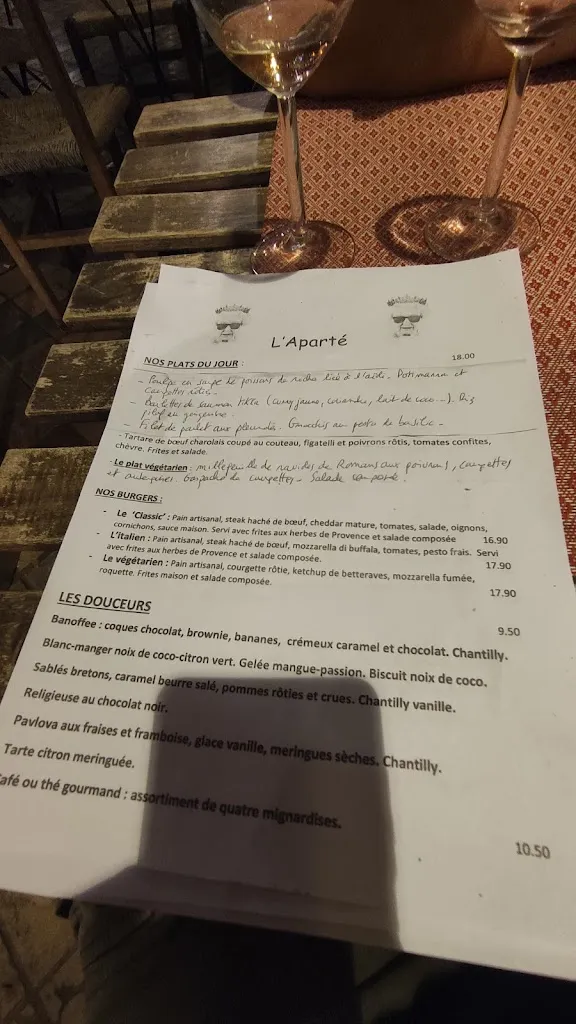 L'Aparté
NOS PLATS DU JOUR : 18.00
- Poulpe en soupe de poissons de roche liée à l'aïoli. Potimarron et
courgettes rôties.
- de saumon tikka (curry jaune, coriandre, lait de coco...). Riz
pilaf au gingembre.
- Filet de poulet aux pleurotes. Gnocchis au pesto de basilic.
- Tartare de bœuf charolais coupé au couteau, figatelli et poivrons rôtis, tomates confites,
chèvre. Frites et salade.
- Le plat végétarien : millefeuille de ravioles de Romans aux poivrons, courgettes
et aubergines. Gaspacho de courgettes. Salade composée.
NOS BURGERS :
- Le 'Classic' : Pain artisanal, steak haché de bœuf, cheddar mature, tomates, salade, oignons,
cornichons, sauce maison. Servi avec frites aux herbes de Provence et salade composée 16.90
- L'italien : Pain artisanal, steak haché de bœuf, mozzarella di buffala, tomates, pesto frais. Servi
avec frites aux herbes de Provence et salade composée. 17.90
- Le végétarien : Pain artisanal, courgette rôtie, ketchup de betteraves, mozzarella fumée,
roquette. Frites maison et salade composée. 17.90
LES DOUCEURS 9.50
Banoffee : coques chocolat, brownie, bananes, crémeux caramel et chocolat. Chantilly.
Blanc-manger noix de coco-citron vert. Gelée mangue-passion. Biscuit noix de coco.
Sablés bretons, caramel beurre salé, pommes rôties et crues. Chantilly vanille.
Religieuse au chocolat noir.
Pavlova aux fraises et framboise, glace vanille, meringues sèches. Chantilly.
Tarte citron meringuée.
afé ou thé gourmand : assortiment de quatre mignardises.
10.50